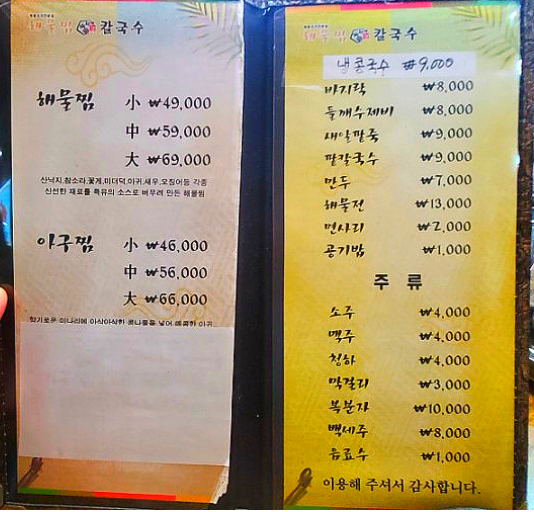 해물찜 칼국수
해물찜 小 ₩49,000
中 ₩59,000
大 ₩69,000
산낙지,참소라,꽃게,미더덕,아귀,새우,오징어등 각종
신선한 재료를 특유의 소스로 버무려 만든 해물찜
아구찜 小 ₩46,000
中 ₩56,000
大 ₩66,000
향기로운 미나리에 아삭아삭한 콩나물을 넣어 매콤한 아귀
해물찜 칼국수
냉콩국수 ₩9,000
바지락 ₩8,000
들깨수제비 ₩8,000
새알팥죽 ₩9,000
팥칼국수 ₩9,000
만두 ₩7,000
해물전 ₩13,000
면사리 ₩2,000
공기밥 ₩1,000
주 류
소주 ₩4,000
맥주 ₩4,000
청하 ₩4,000
막걸리 ₩3,000
복분자 ₩10,000
백세주 ₩8,000
음료수 ₩1,000
이용해 주셔서 감사합니다.